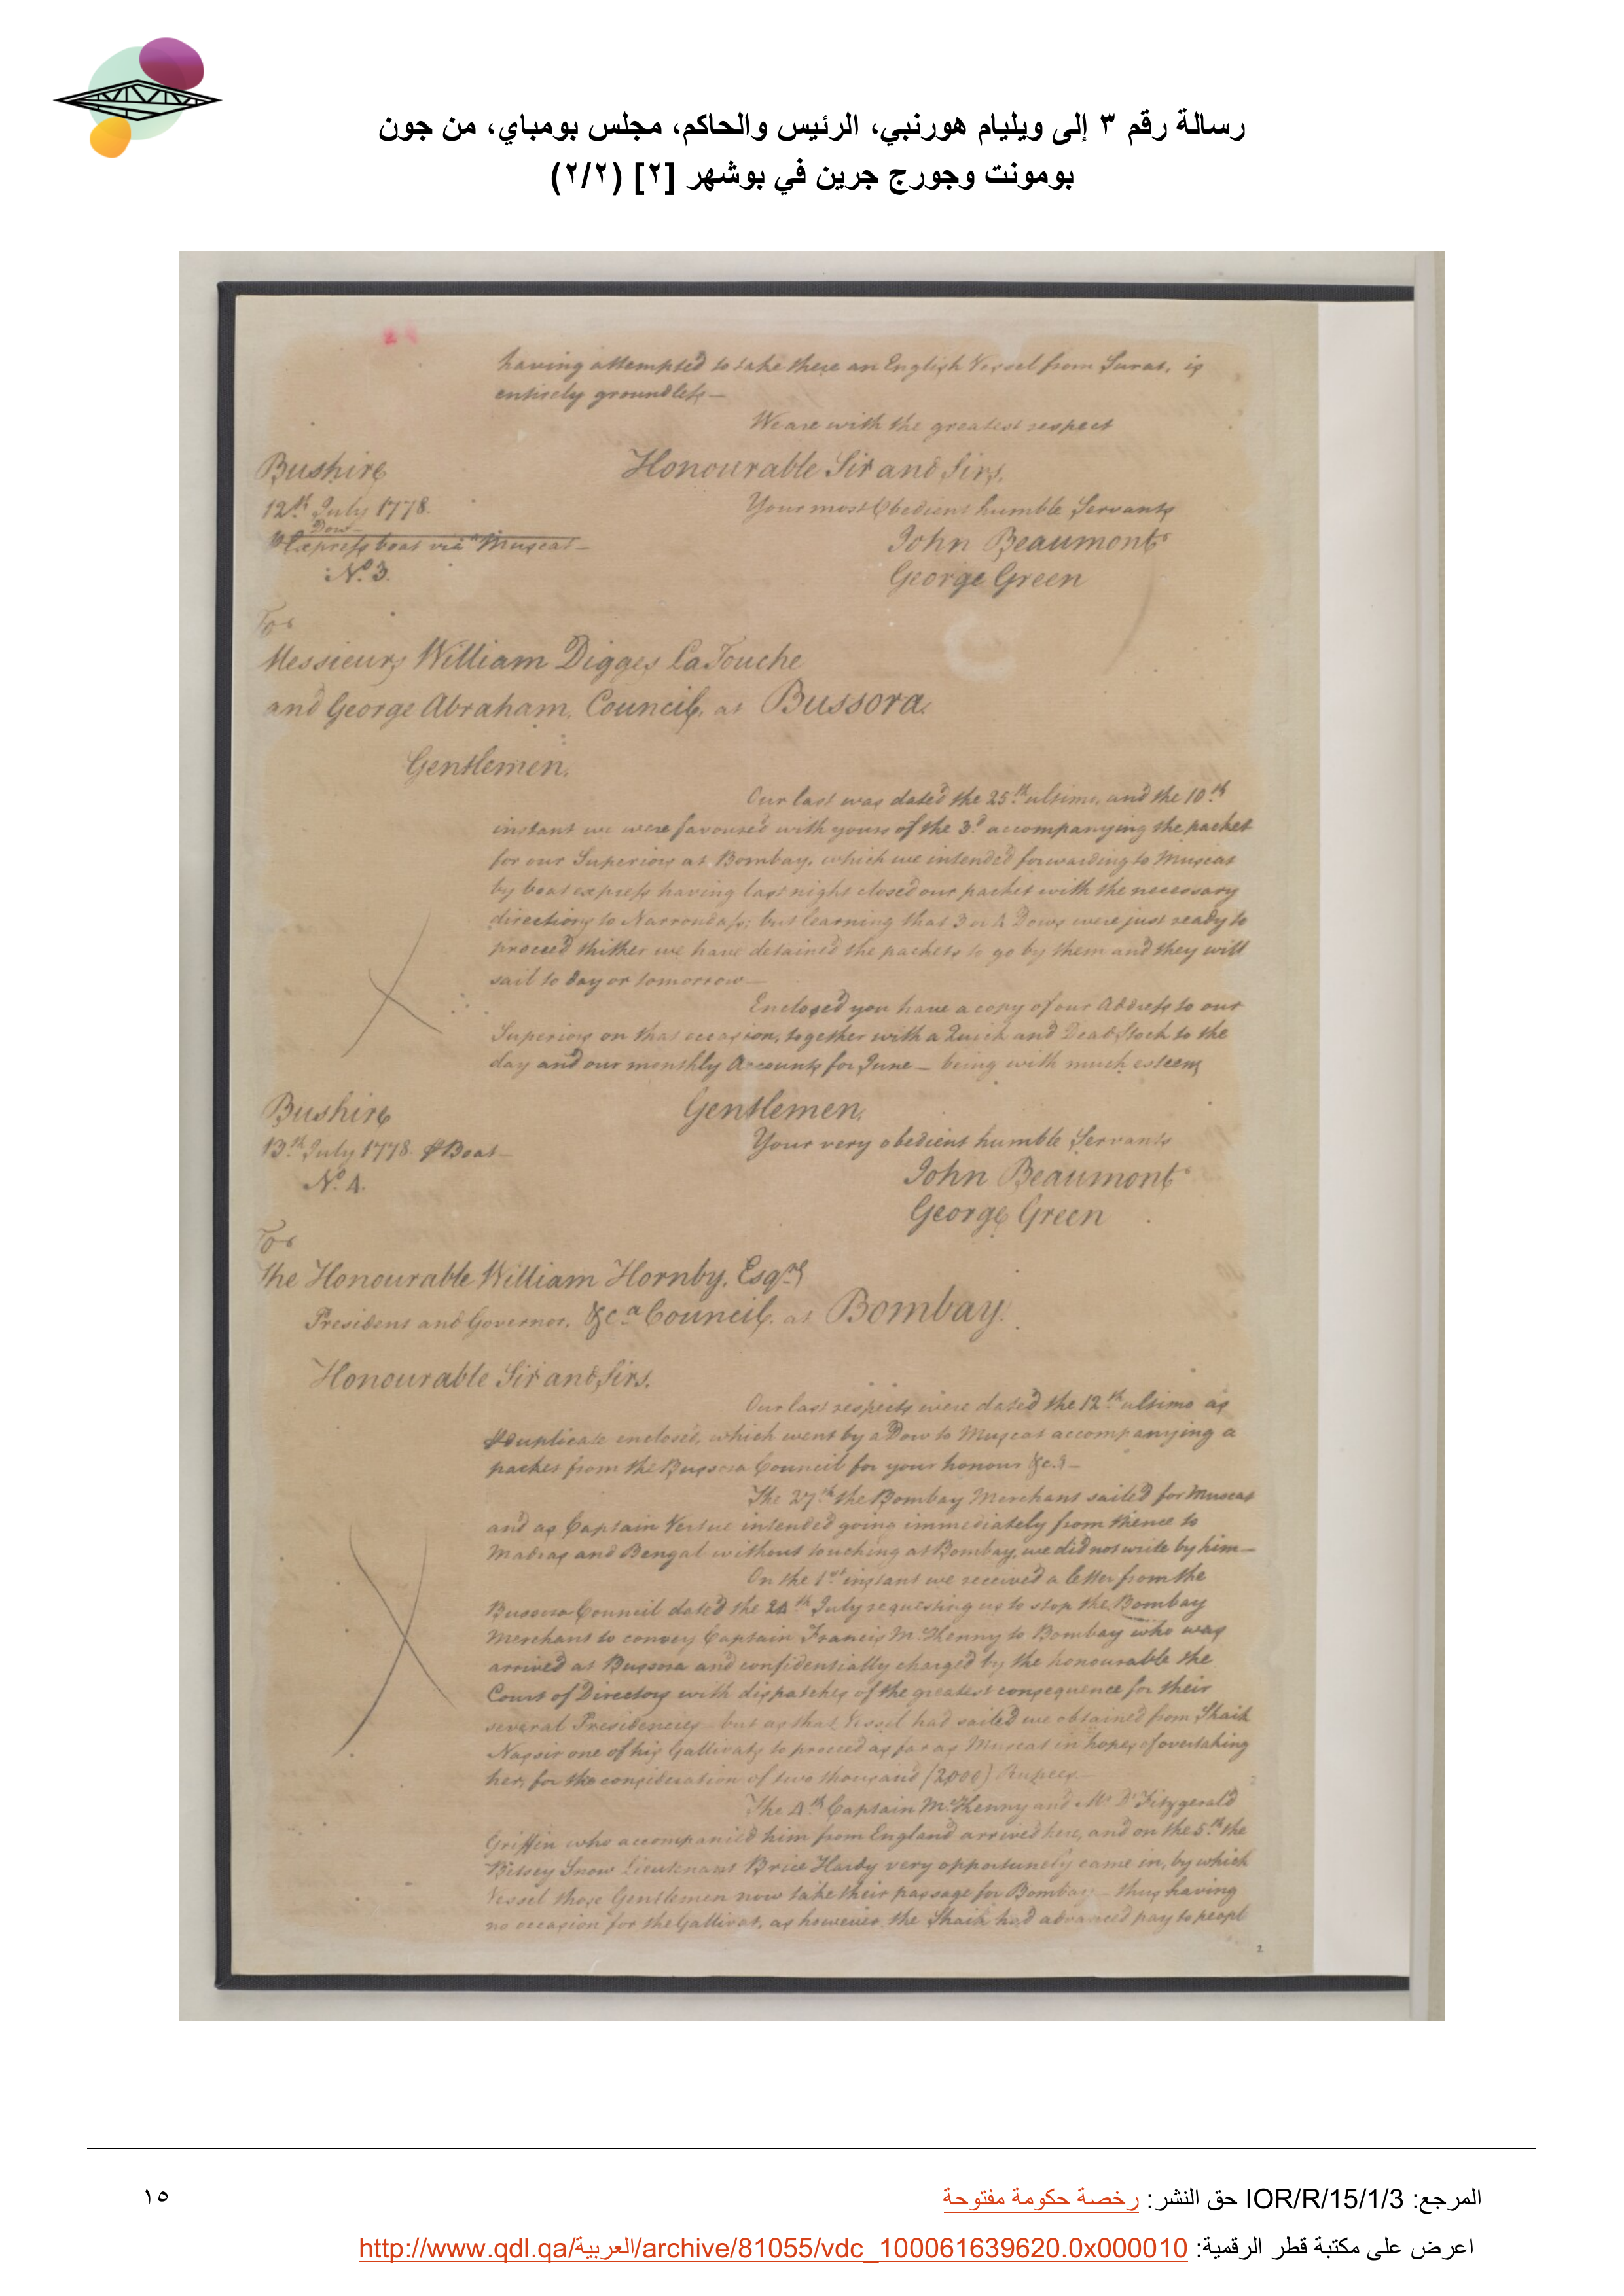 رسالة رقم ٣ إلى ويليام هورنبي، الرئيس والحاكم، مجلس بومباي، من جون
بومونت وجورج جرين في بوشهر [٢] (٢/٢)
having attempted to take there an English Vessel from Surat, is
entirely groundless —
We are with the greatest respect
Bushire
Honourable Sir and Sirs,
12th July 1778.
Your most Obedient humble Servants
Dow
Express boat via Muscat —
John Beaumont
No. 3.
George Green
To
Messieurs William Digges LaTouche
and George Abraham, Council, at Bussora.
Gentlemen,
Our last was dated the 25th ultimo, and the 10th
instant we were favoured with yours of the 3d accompanying the packet
for our Superiors at Bombay, which we intended forwarding to Muscat
by boat express having last night closed our packet with the necessary
directions to Narrondass; but learning that 3 or 4 Dows were just ready to
proceed thither we have detained the packets to go by them and they will
sail to day or tomorrow —
Enclosed you have a copy of our Address to our
Superiors on that occasion, together with a Quick and Dead Stock to the
day and our monthly Accounts for June — being with much esteem
Bushire
Gentlemen,
13th July 1778. Boat —
Your very obedient humble Servants
No. 4.
John Beaumont
George Green
To
The Honourable William Hornby, Esqre
President and Governor, &ca Council, at Bombay.
Honourable Sir and Sirs,
Our last respects were dated the 12th ultimo as
duplicate enclosed, which went by a Dow to Muscat accompanying a
packet from the Bussora Council for your honour &c. —
The 27th the Bombay Merchant sailed for Muscat
and as Captain Vertue intended going immediately from thence to
Madras and Bengal without touching at Bombay, we did not write by him —
On the 1st instant we received a letter from the
Bussora Council dated the 24th July requesting us to stop the Bombay
Merchant to convey Captain Francis McKenny to Bombay who was
arrived at Bussora and confidentially charged by the honourable the
Court of Directors with dispatches of the greatest consequence for their
several Presidencies — but as that Vessel had sailed we obtained from Shaik
Nassir one of his Gallivats to proceed as far as Muscat in hopes of overtaking
her, for the consideration of two thousand (2,000) Rupees. —
The 4th Captain McKenny and Mr. Fitzgerald
Griffin who accompanied him from England arrived here, and on the 5th the
Betsey Snow Lieutenant Brice Hardy very opportunely came in, by which
Vessel those Gentlemen now take their passage for Bombay — thus having
no occasion for the Gallivat, as however the Shaik had advanced pay to peopl
2
المرجع: IOR/R/15/1/3 حق النشر: رخصة حكومة مفتوحة
١٥
اعرض على مكتبة قطر الرقمية: http://www.qdl.qa/العربية/archive/81055/vdc_100061639620.0x000010